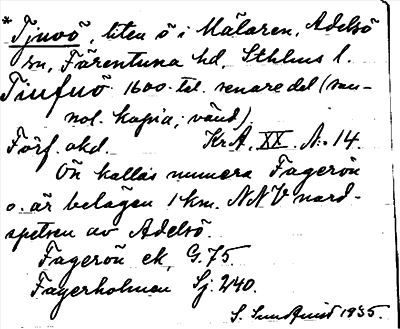 *Tjuvö, liten ö i Mälaren, Adelsö
sn, Färentuna hd, Sthlms l.
Tiufuö 1600-tal. senare del (san-
nol. kopia; vänd).
Förf. okd. Kr.A. XX. N:o 14.
Ön kallas numera Fagerön
o. är belägen 1 km. NNV nord-
spetsen av Adelsö.
Fagerön ek. G. 75
Fagerholmen Sj. 240.
S. Sundquist 1935.